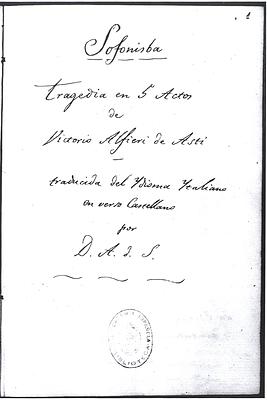 1
Sofonisba
Tragedia en 5 Actos
de
Victorio Alfieri de Asti
traducida del Ydioma Ytaliano
en verso Castellano
por
D. A. d. S.